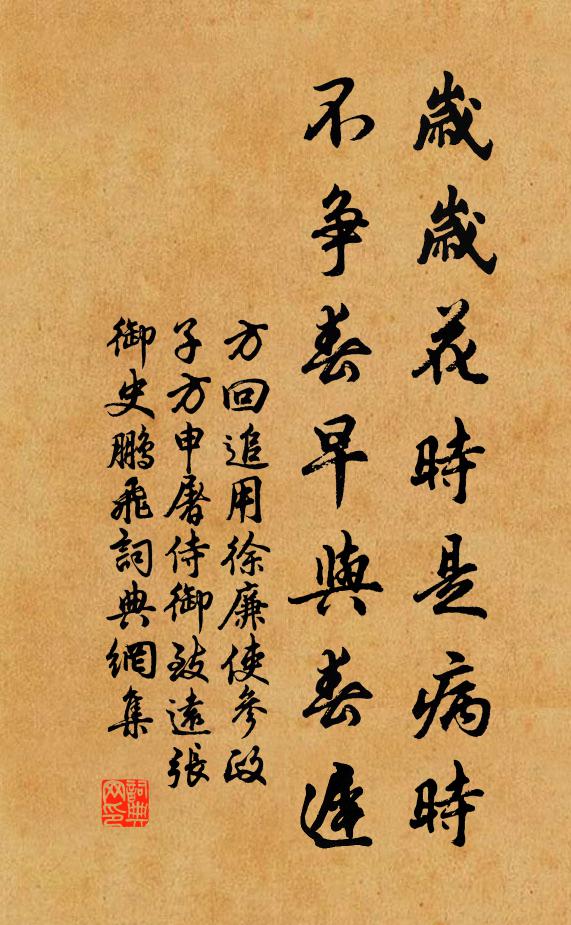 歲歲花時是病時
不爭春早與春遲
方回追用徐廉使參政
子方申屠侍御致遠張
御史鵬飛詞典網集
詞典
网印